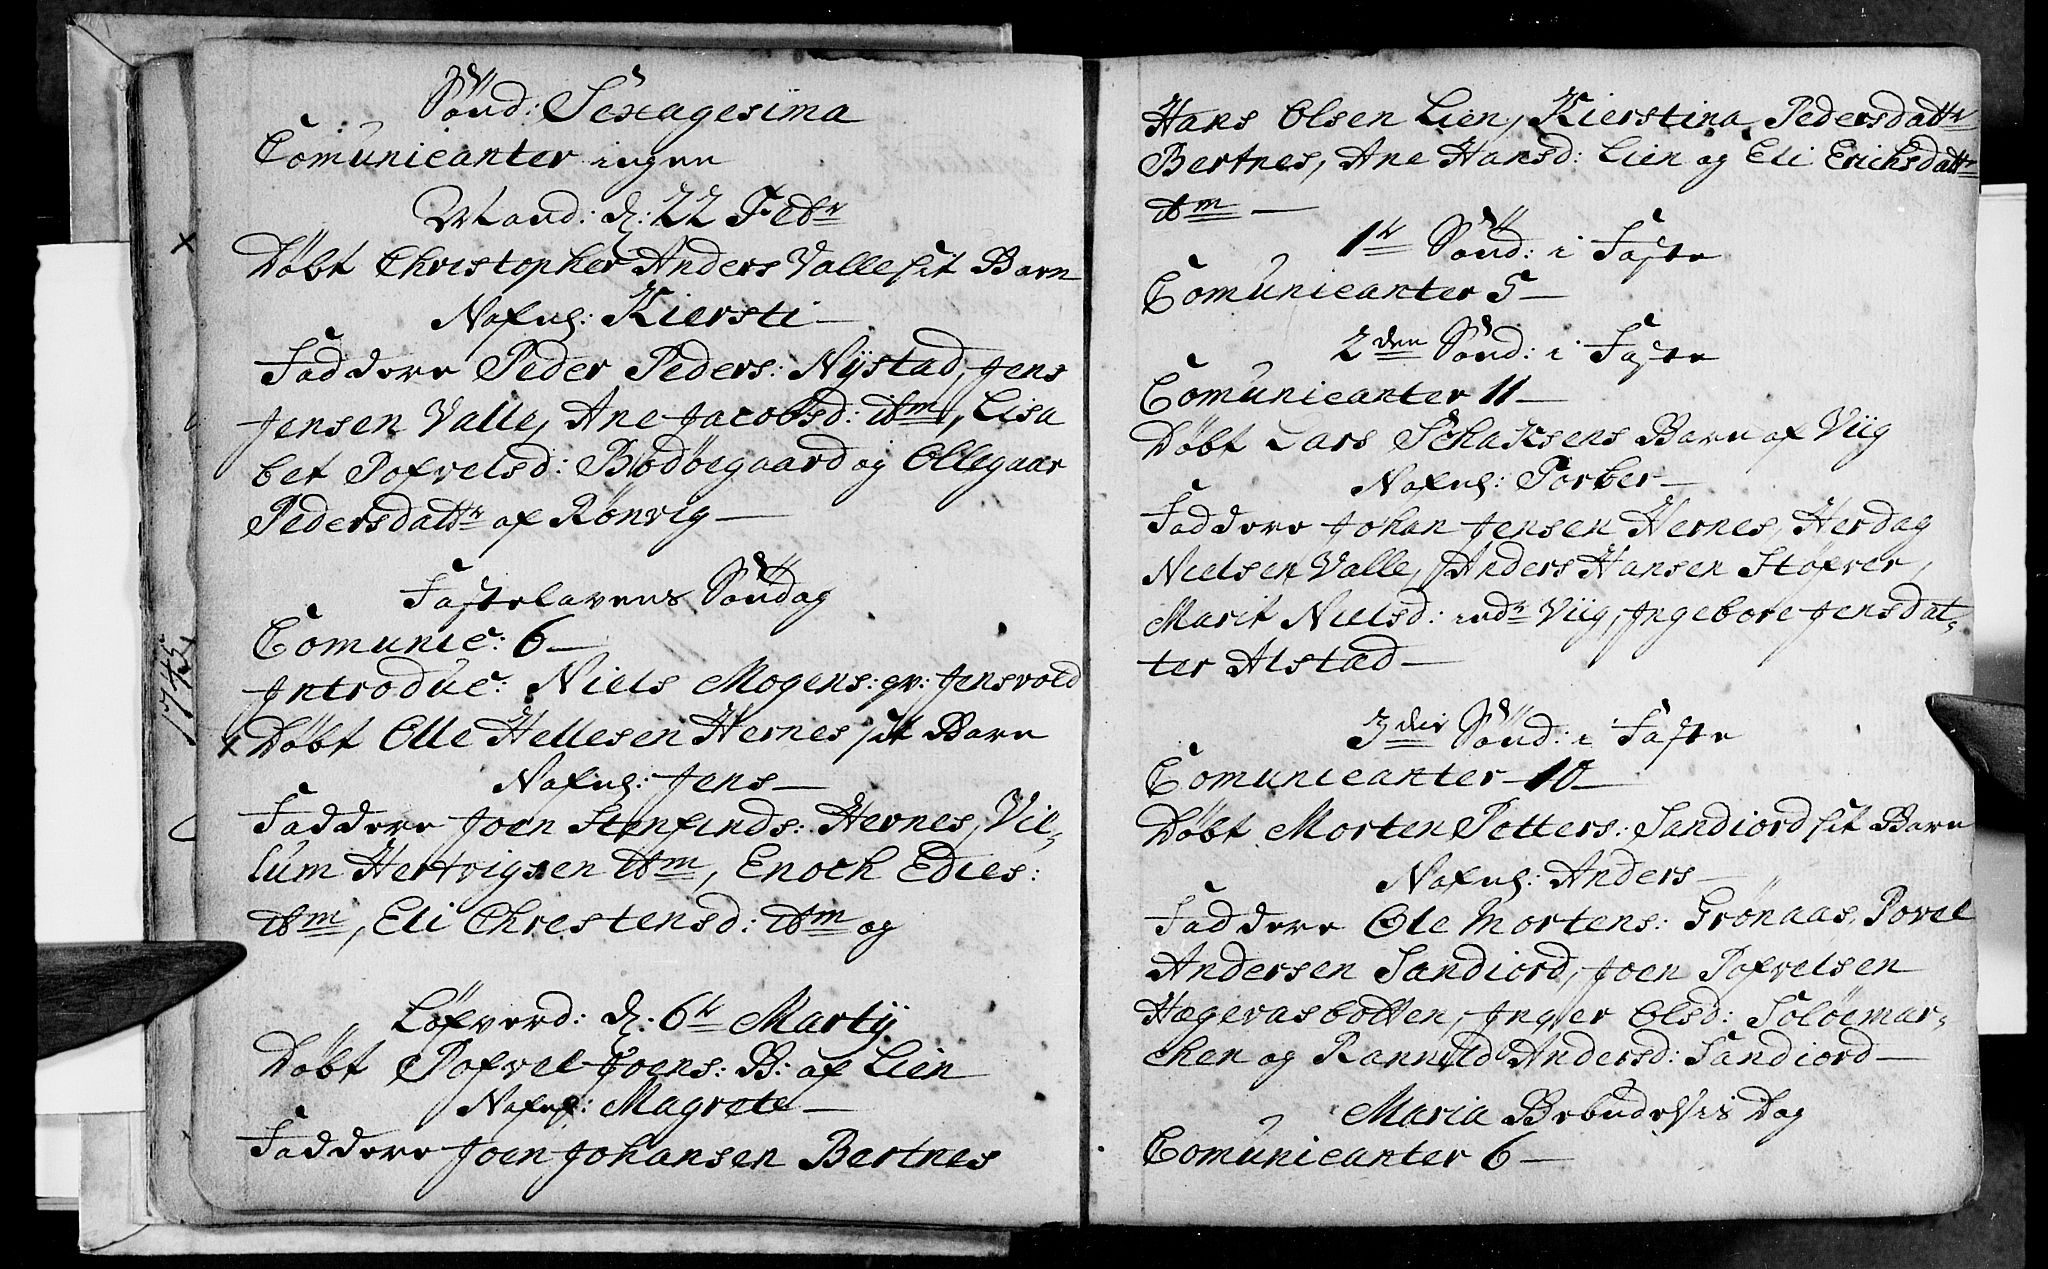 Sønd: Sexagesima
Comunicanter ingen
Mand: d: 22 Febr
x Døbt Christopher Anders Valle sit Barn
Nafnl: Kiersti —
Faddere Peder Peders: Nÿstad, Jens
Jensen Valle, Ane Jacobsd: ibm, Lisa
bet Pofvelsd: Bodøegaard og Ollegaar
Pedersdattr af Rønvig —
Fastelavens Søndag
Comunic: 6 —
1745
Introduc: Niels Mogens: qv: Jensvold
x Døbt Olle Hellesen Hernes sit Barn
Nafnl: Jens —
Faddere Joen Stenfinds: Hernes, Vil-
lum Hertvigsen ibm, Enoch Edies:
ibm, Eli Chrestensd: ibm og
Løfverd: d. 6tr Martij
Døbt Pofvel Joens: B: af Lien
Nafnl: Magrete —
Faddere Joen Johansen Bertnes
Hans Olsen Lien, Kierstina Pedersdattr
Bertnes, Ane Hansd: Lien og Eli Erichsdattr
ibm —
1tr Sønd: i Faste
Comunicanter 5 —
2den Sønd: i Faste
Comunicanter 11 —
Døbt Lars Schaksens Barn af Viig
Nafnl: Torber —
Faddere Johan Jensen Hernes, Herdag
Nielsen Valle, Anders Hansen Støfver,
Marit Nielsd: indr Viig, Ingebore Jensdat-
ter Alstad —
3die Sønd: i Faste
Comunicanter 10 —
Døbt Morten Petters: Sandiord sit Barn
Nafnl: Anders —
Faddere Ole Mortens: Grønaas, Povel
Andersen Sandiord, Joen Pofvelsen
Hægevasbotten, Inger Olsd: Soløemar-
chen og Rannild Andersd: Sandiord —
Maria Bebudelsis Dag
Comunicanter 6 —